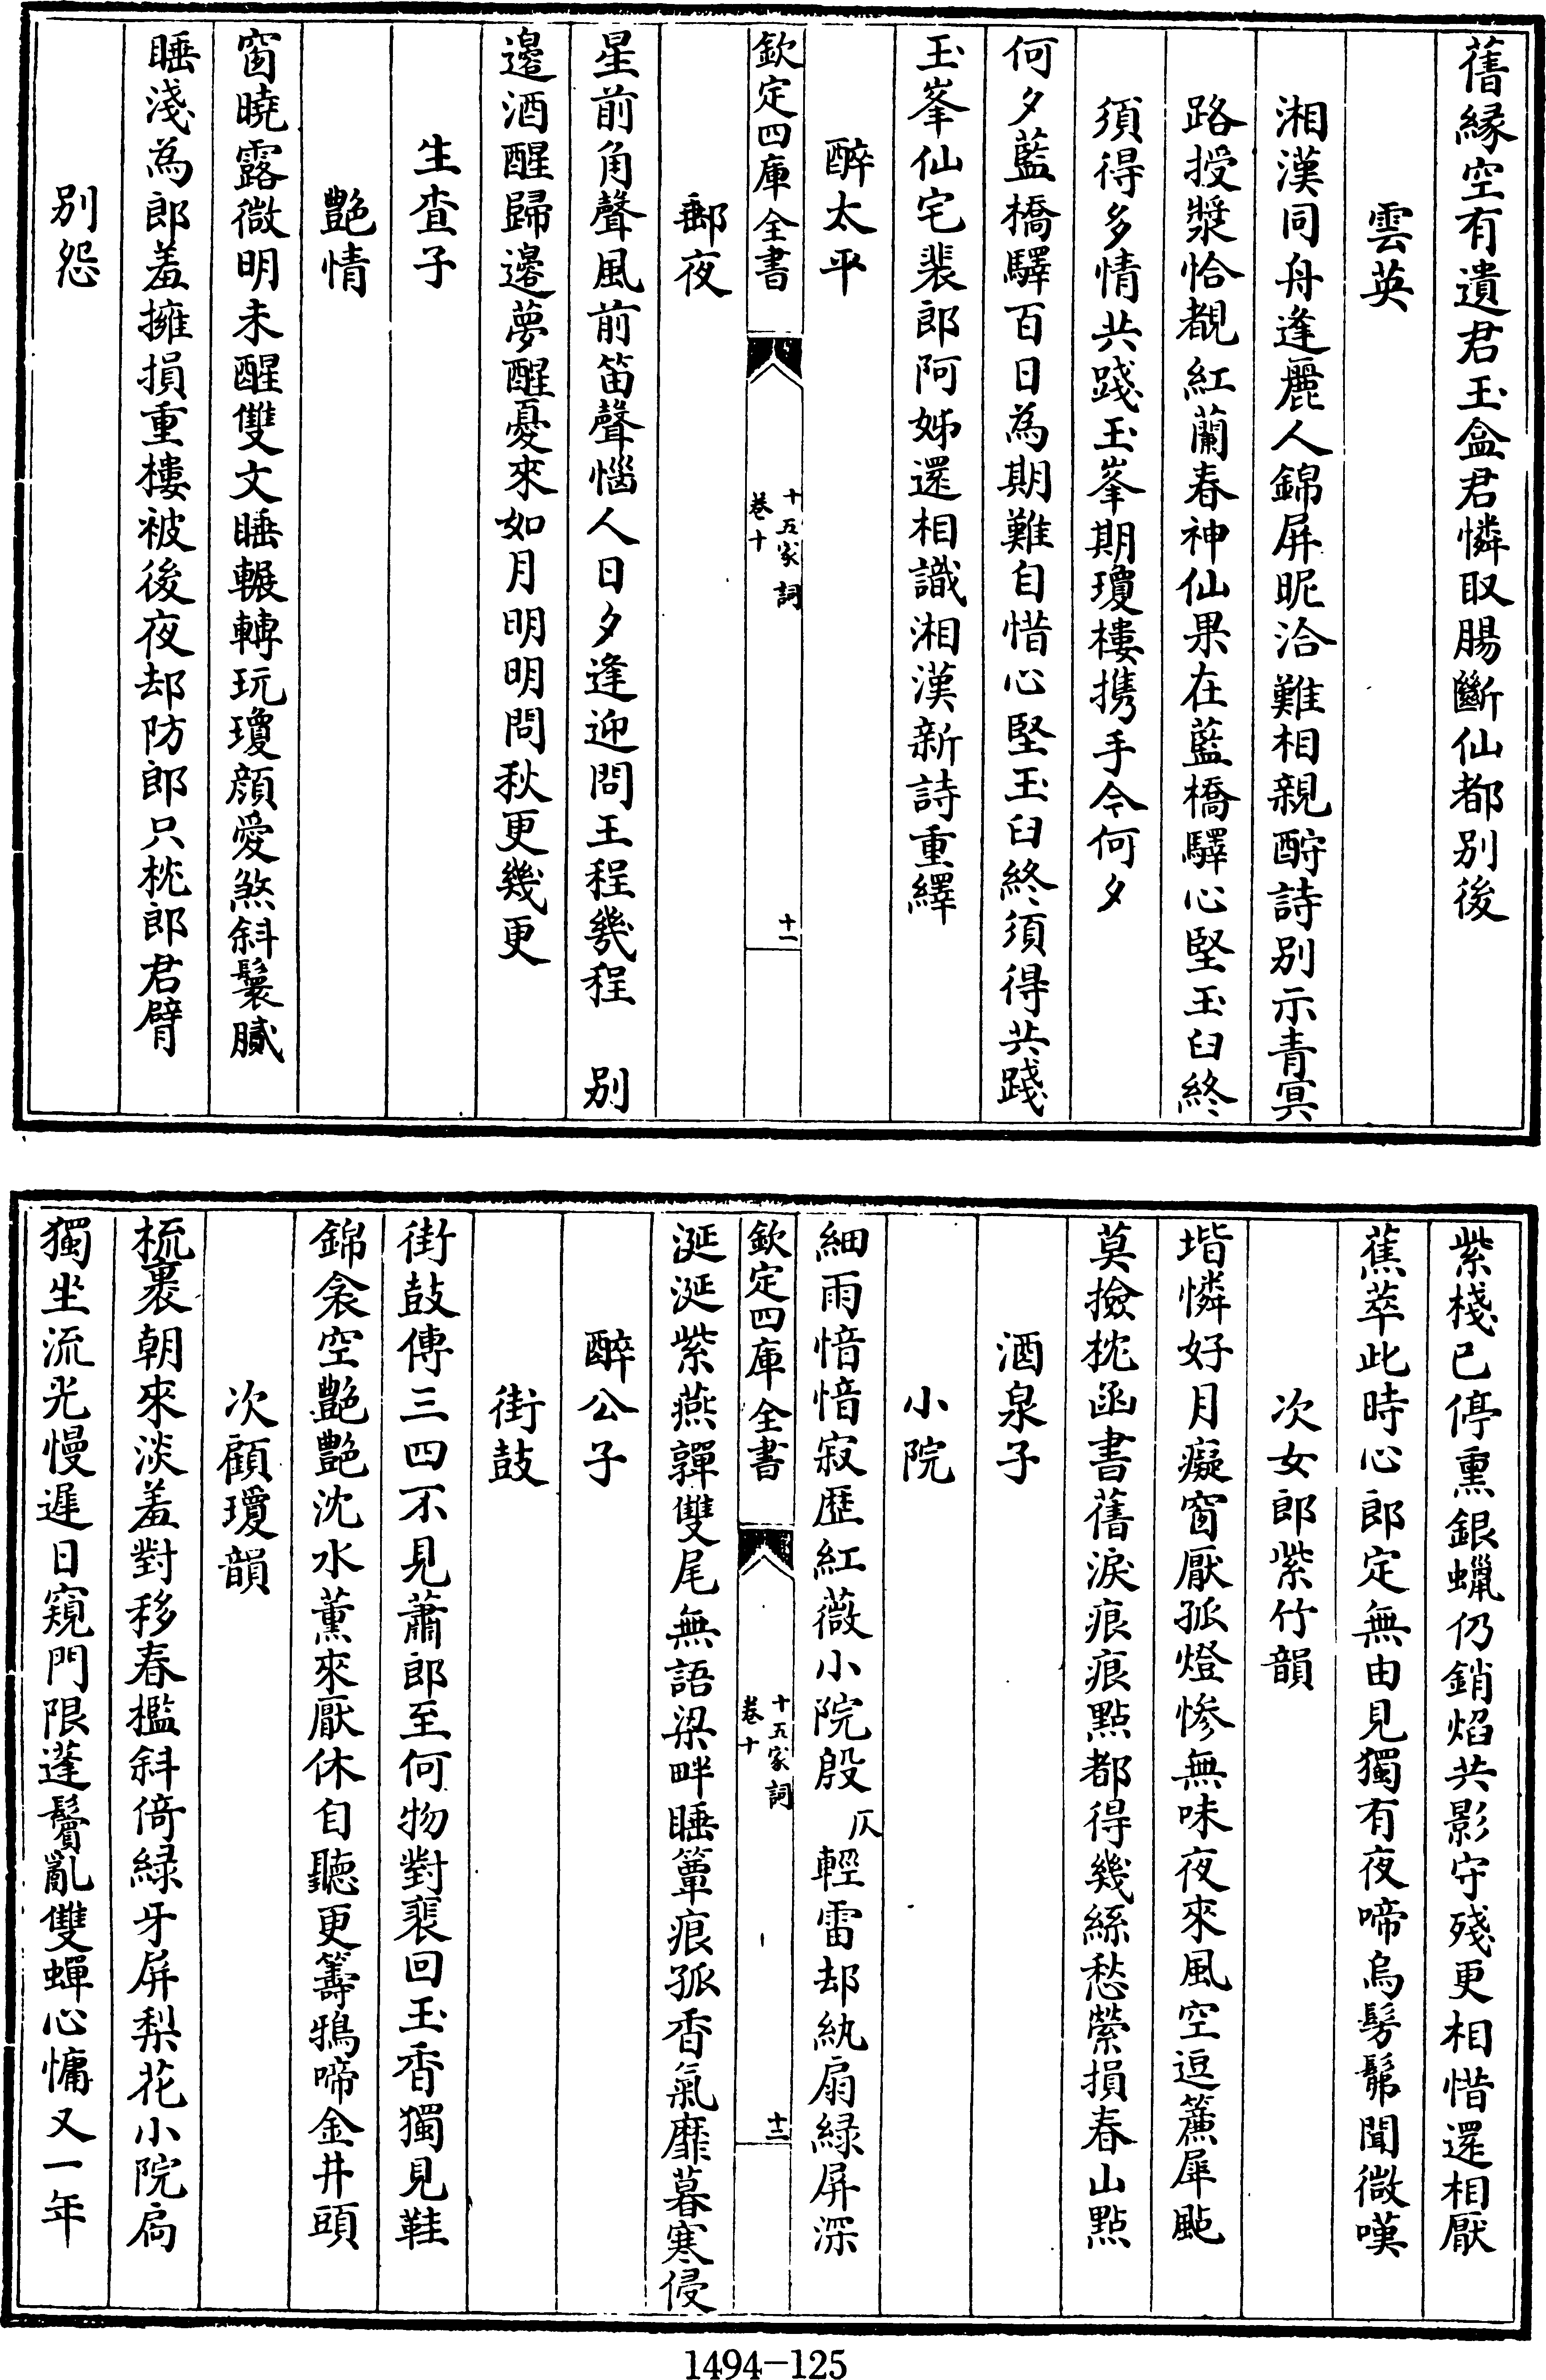 舊緣空有遺君玉盒君憐取腸斷仙都别後
雲英
湘漢同舟逢麗人錦屏昵洽難相親酧詩别示青㝠
路授漿恰覩紅蘭春神仙果在藍橋驛心堅玉臼終
須得多情共踐玉峯期瓊樓携手今何夕
何夕藍橋驛百日為期難自惜心堅玉臼終須得共踐
玉峯仙宅裴郎阿姊還相識湘漢新詩重繹
醉太平
欽定四庫全書
十五家詞
卷十
十一
郵夜
星前角聲風前笛聲惱人日夕逢迎問王程幾程 别
邊酒醒歸邊夢醒憂來如月明明問秋更幾更
生查子
艶情
窗曉露微明未醒雙文睡輾轉玩瓊顔愛煞斜鬟膩
睡淺為郎羞擁損重樓被後夜却防郎只枕郎君臂
别怨
紫棧已停熏銀蠟仍銷焰共影守殘更相惜還相厭
蕉萃此時心郎定無由見獨有夜啼烏髣髴聞微嘆
次女郎紫竹韻
堦憐好月癡窗厭孤燈慘無味夜來風空逗簾犀颭
莫撿枕函書舊淚痕痕點都得幾絲愁縈損春山點
酒泉子
小院
細雨愔愔寂歴紅薇小院殷 仄 輕雷却紈扇緑屏深
涎涎紫燕嚲雙尾無語梁畔睡簟痕孤香氣靡暮寒侵
欽定四庫全書
十五家詞
卷十
十二
醉公子
街鼓
街鼓傳三四不見蕭郎至何物對裴回玉香獨見鞋
錦衾空艶艶沈水薫來厭休自聽更籌鴉啼金井頭
次顧瓊韻
梳裹朝來淡羞對移春檻斜倚緑牙屏梨花小院扃
獨坐流光慢遲日窺門限蓬鬢亂雙蟬心慵又一年
1494-125